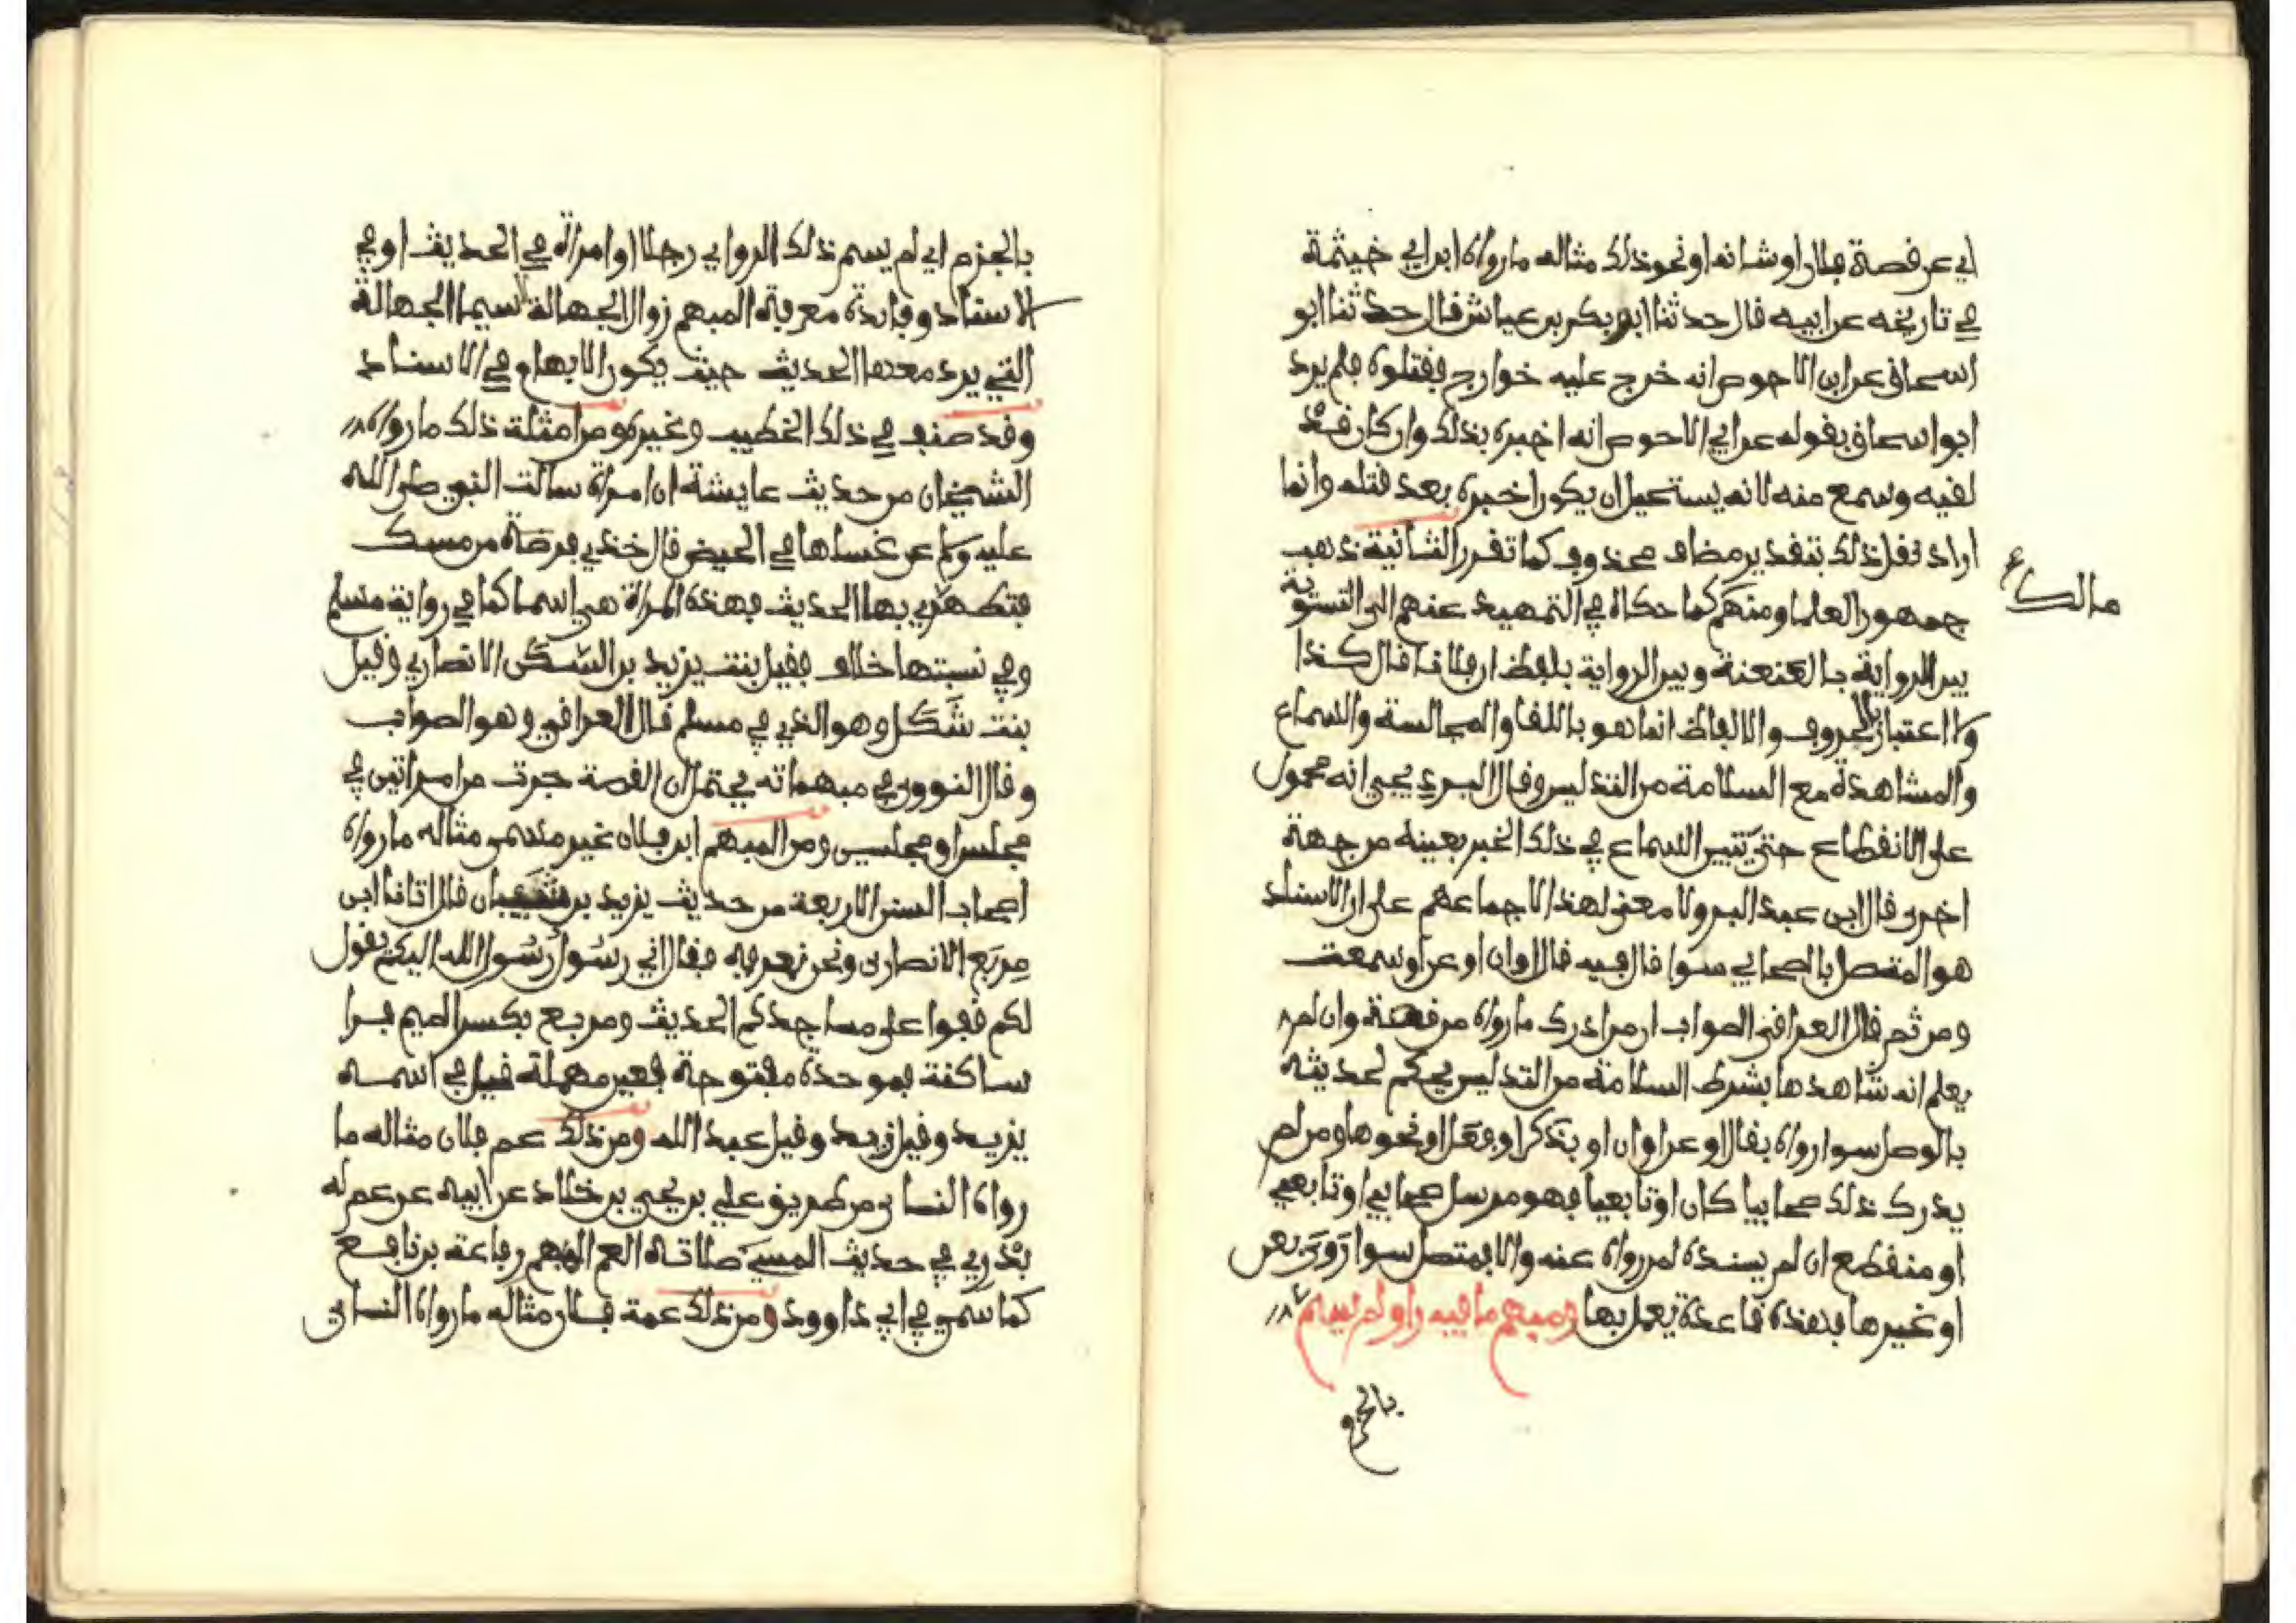 اي عن قصة فلان او شانه او نحو ذلك مثاله ما رواه ابن ابي خيثمة
في تاريخه عن ابيه قال حدثنا ابو بكر بن عياش قال حدثنا ابو
اسحاق عن ابن الاحوص انه خرج عليه خوارج فقتلوه فلم يرد
ابو اسحاق بقوله عن ابي الاحوص انه اخبره بذلك وان كان قد
لقيه وسمع منه لانه يستحيل ان يكون اخبره بعد قتله وانما
اراد نقل ذلك بتقدير مضاف محذوف كما تقرر الثانية ذهب
جمهور العلما ومنهم كما حكاه في التمهيد عنهم الى التسوية
مالك
بين الرواية بالعنعنة وبين الرواية بلفظ ان فلانا قال كذا
ولا اعتبار بالحروف والالفاظ انما هو باللقا والمجالسة والسماع
والمشاهدة مع السلامة من التدليس وقال البرديجي انه محمول
على الانقطاع حتى يتبين السماع في ذلك الخبر بعينه من جهة
اخرى قال ابن عبد البر ولا معنى لهذا لاجماعهم على ان الاسناد
هو المتصل بالصحابي سوا قال فيه قال او ان او عن او سمعت
ومن ثم قال العراقي الصواب ان من ادرك ما رواه من قصة وان لم
يعلم انه شاهدها بشرط السلامة من التدليس يحكم لحديثه
بالوصل سوا رواه بقال او عن او ان او بذكر او فعل او نحوها ومن لم
يدرك ذلك صحابيا كان او تابعيا فهو مرسل صحابي او تابعي
او منقطع ان لم يسنده لمن رواه عنه والا بمتصل سوا روى بعن
او غيرها بهذه قاعدة يعمل بها ومبهم ما فيه راو لم يسم
بالجزم
بالجزم اي لم يسم ذلك الراوي رجلا او امراة في الحديث او في
الاسناد وفايدة معرفة المبهم زوال الجهالة لا سيما الجهالة
التي يرد معها الحديث حيث يكون الابهام في الاسناد
وقد صنف في ذلك الخطيب وغيره ومن امثلة ذلك ما رواه
الشيخان من حديث عايشة ان امراة سالت النبي صلى الله
عليه وسلم عن غسلها في الحيض قال خذي فرصة من مسك
فتطهري بها الحديث فهذه المراة هي اسما كما في رواية مسلم
وفي نسبتها خلاف فقيل بنت يزيد بن السكن الانصاري وقيل
بنت شكل وهو الذي في مسلم قال العراقي وهو الصواب
وقال النووي في مبهماته يحتمل ان القصة جرت من امراتين في
مجلس او مجلسين ومن المبهم ابن فلان غير مسمى مثاله ما رواه
اصحاب السنن الاربعة من حديث يزيد بن شيبان قال اتانا ابن
مربع الانصاري ونحن بعرفة فقال اني رسول رسول الله اليكم يقول
لكم قفوا على مساجدكم الحديث ومربع بكسر الميم فرا
ساكنة فموحدة مفتوحة فعين مهملة قيل في اسمه
يزيد وقيل زيد وقيل عبد الله ومن ذلك عم فلان مثاله ما
رواه النسائي من طريق علي بن يحيى بن خلاد عن ابيه عن عم له
بدري في حديث المسيء صلاته العم المبهم رفاعة بن رافع
كما سمي في ابي داوود ومن ذلك عمة فلان مثاله ما رواه النسائي